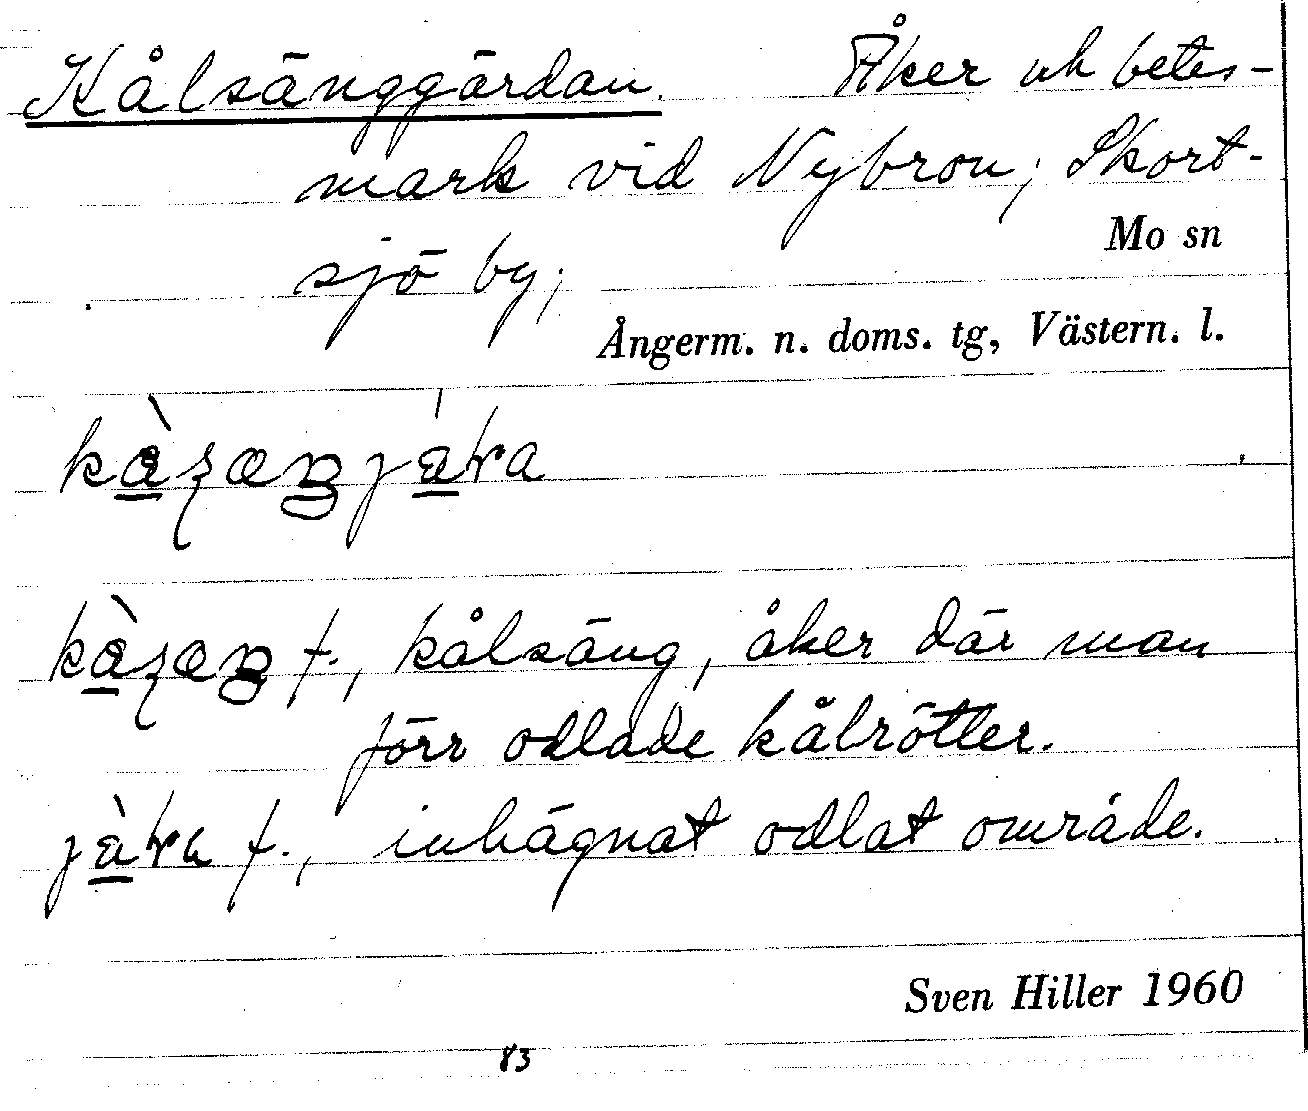 Kålsänggärdan. Åker och betes-
mark vid Nybron, Skort-
sjö by,
Mo sn
Ångerm. n. doms. tg, Västern. l.
f., kålsäng, åker där man
förr odlade kålrötter.
f., inhägnat odlat område.
Sven Hiller 1960
83